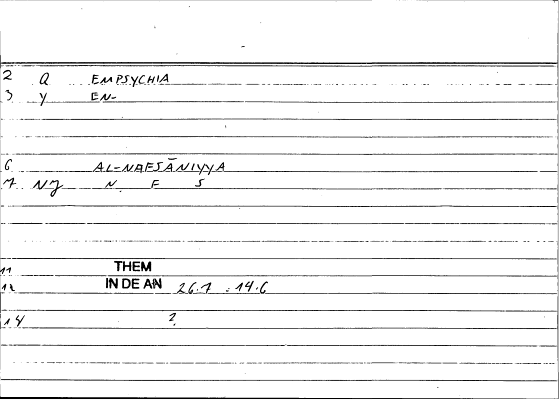 2 Q EMPSYCHIA
3 Y EN-
6 AL-NAFSĀNIYYA
7 NJ N F S
11 THEM
12 IN DE AN 26.7 : 14.6
14 ?